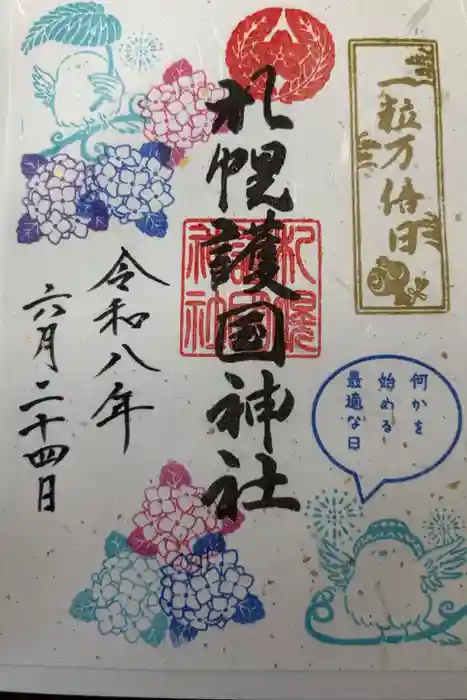 一粒万倍日
札幌護國神社
札幌
護國
神社
令和八年
六月二十四日
何かを
始める
最適な日